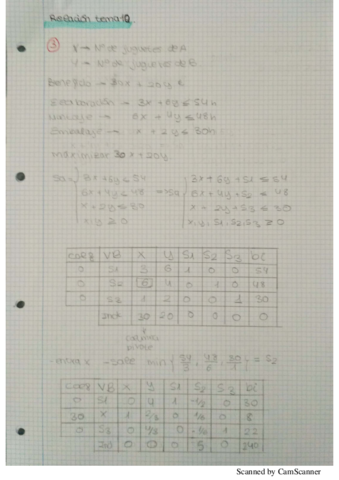 Relación tema 10
③ X → Nº de juguetes de A
Y → Nº de juguetes de B
Beneficio → 30x + 20y €
→ 3x + 6y ≤ 54h
→ 6x + 4y ≤ 48h
Embalaje → x + 2y ≤ 30h
maximizar 30x + 20y
sa 3x + 6y ≤ 54 3x + 6y + S1 ≤ 54
6x + 4y ≤ 48 ⇒ sa 6x + 4y + S2 = 48
x + 2y ≤ 30 x + 2y + S3 ≤ 30
x, y ≥ 0 x, y, S1, S2, S3 ≥ 0
VB X Y S1 S2 S3 bi
0 S1 3 6 1 0 0 54
0 S2 6 4 0 1 0 48
0 S3 1 2 0 0 1 30
30 20 0 0 0 0
entra x → sale min { 54/3, 48/6, 30/1 } = S2
VB X Y S1 S2 S3 bi
0 S1 0 4 1 -1/2 0 30
30 X 1 2/3 0 1/6 0 8
0 S3 0 4/3 0 -1/6 1 22
0 0 0 5 0 240
Scanned by CamScanner